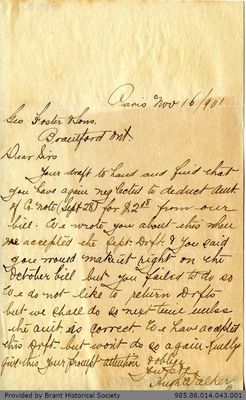 Paris Nov 16/901
Geo. Foster & Sons.
Brantford Ont.
Dear Sirs
Your draft to hand and find that
you have again neglected to deduct amt
of Cr. note (Sept 25) for $2 from our
bill. We wrote you about this when
we accepted the Sept. Drft. & you said
you would make it right on the
October bill but you failed to do so
We do not like to return Drfts
but we shall do so next time unless
the amt is correct We have accepted
this Drft but wont do so again
give this your prompt attention & oblige
Hugh Walker
Provided by Brant Historical Society
985.86.014.043.001